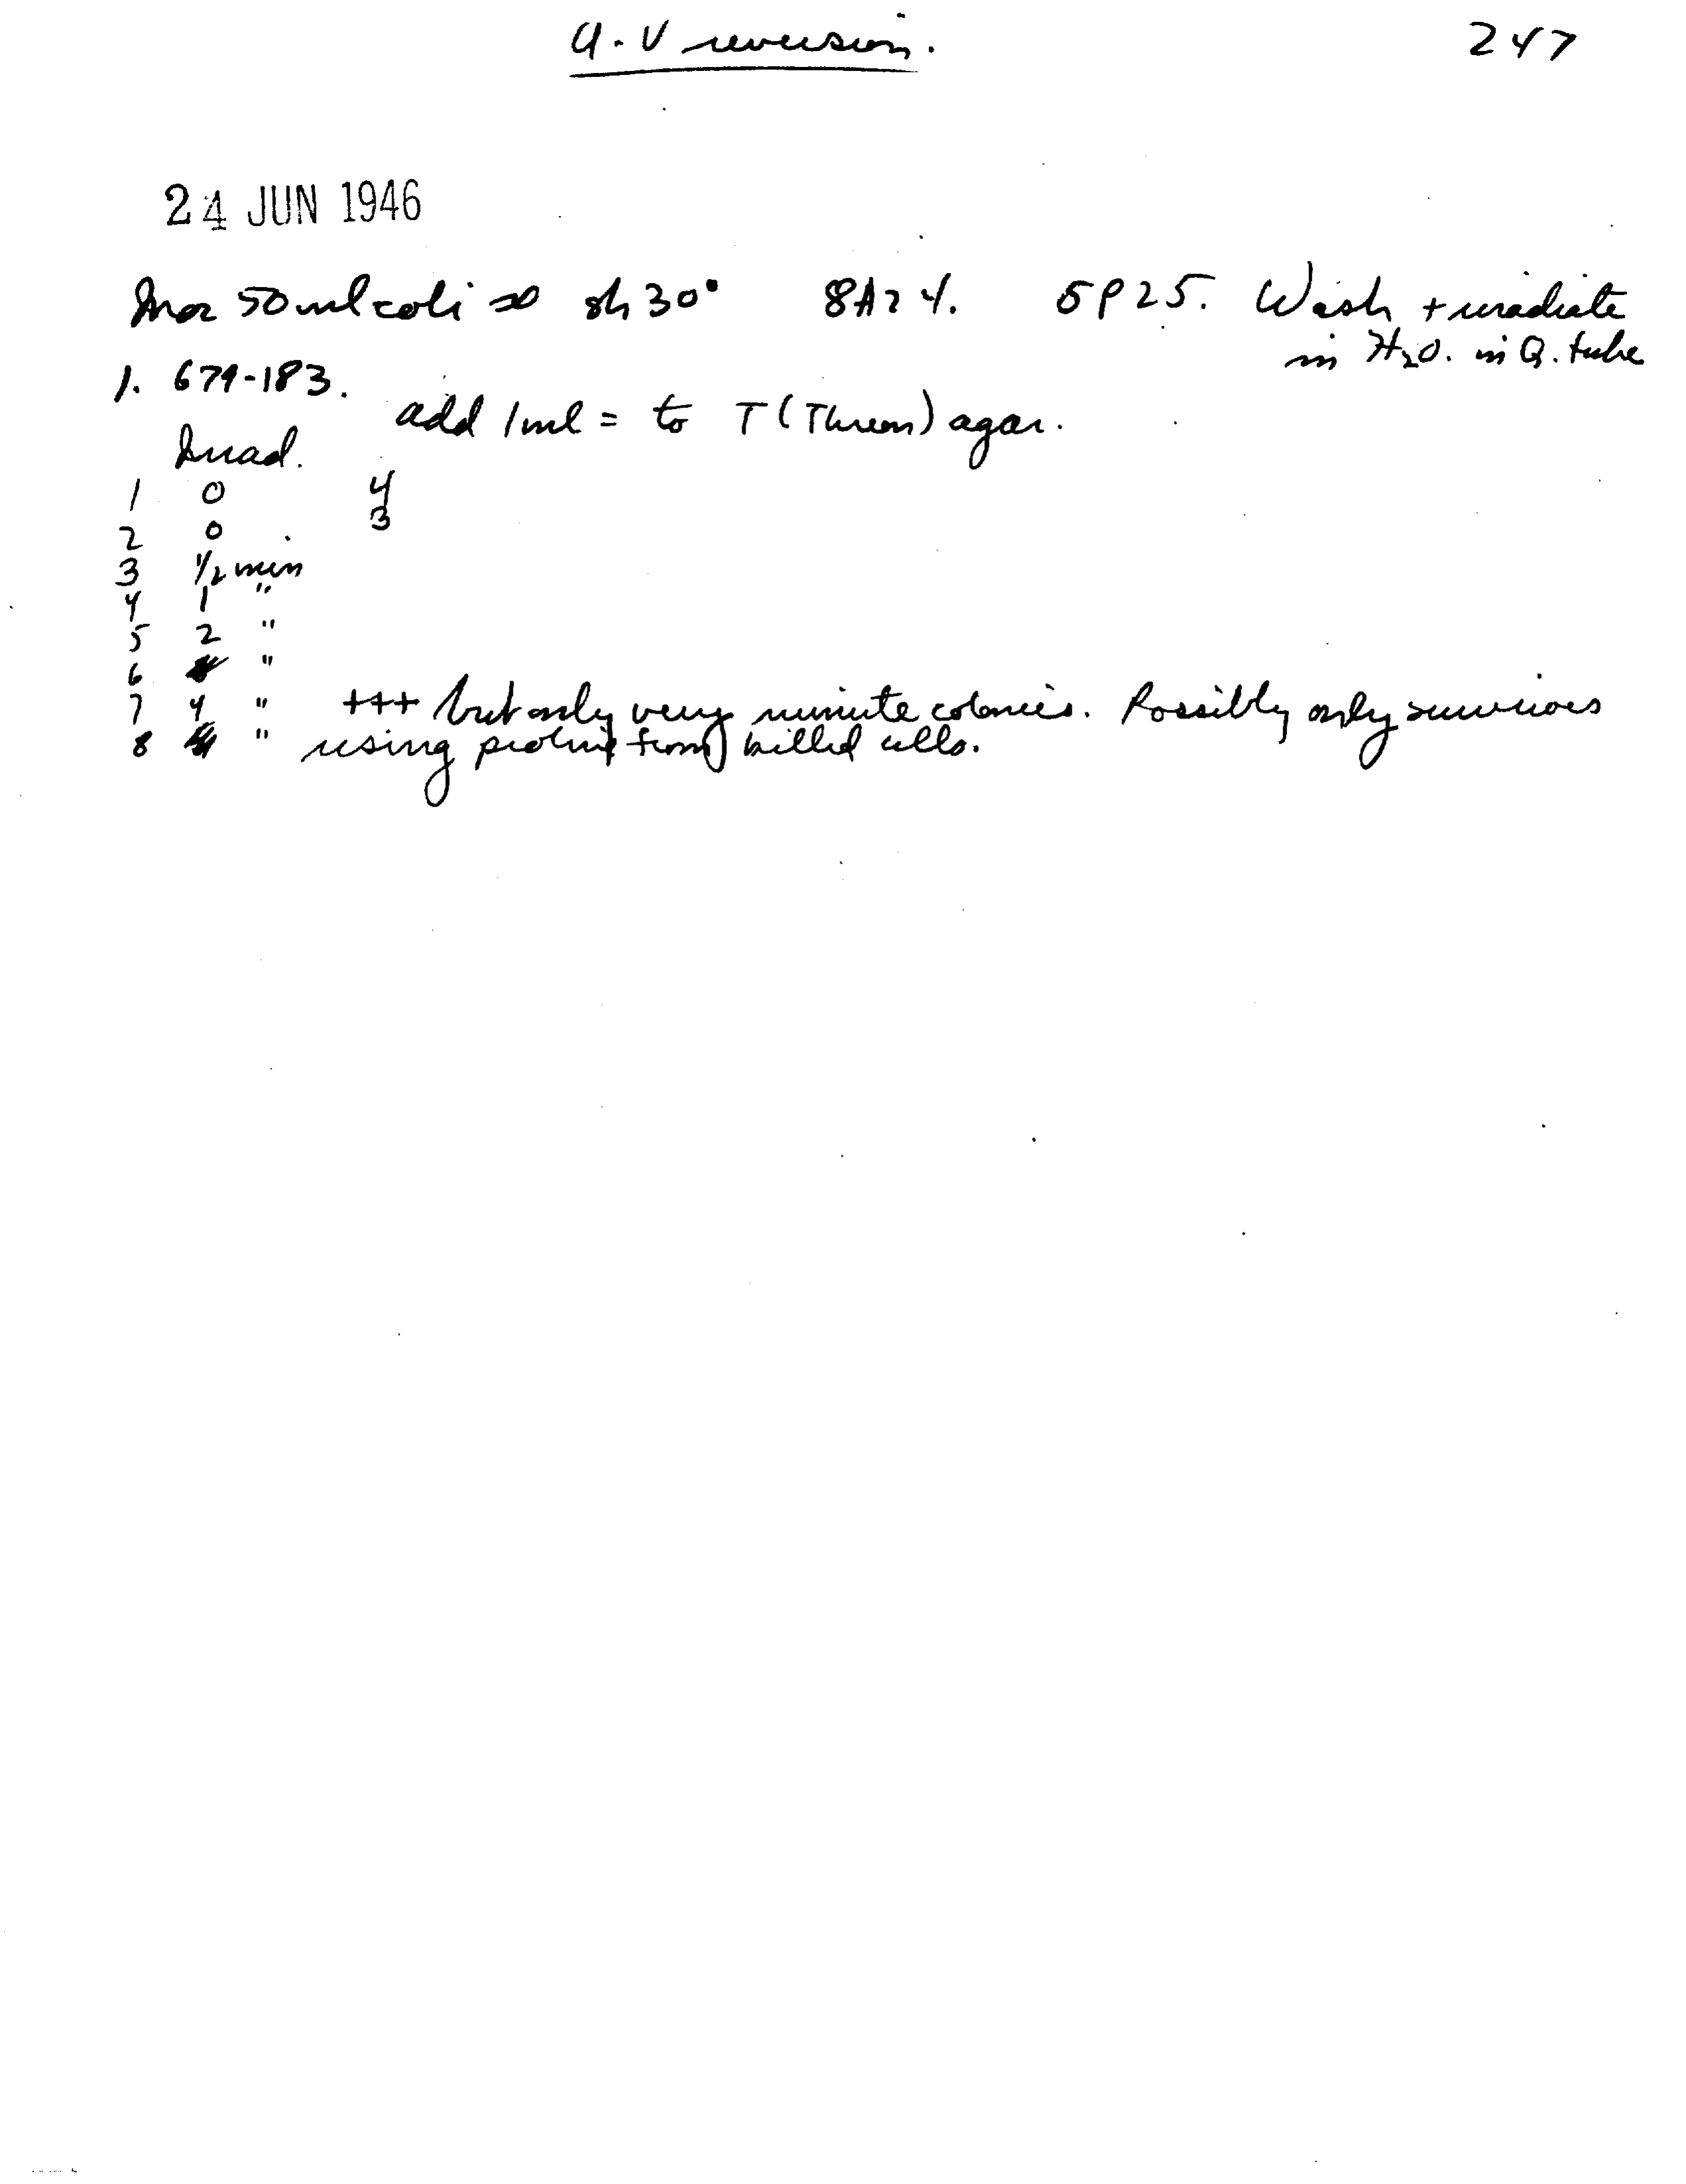 U.V reversion.
247
24 JUN 1946
50 ml coli sh 30° 8A24. 5P25. Wash + irradiate
in H₂O. in Q. tube
1. 679-183.
add 1 ml = to T (Threon) agar.
Irrad.
1 0 4
2 0 3
3 1/2 min
4 1 "
5 2 "
6 "
7 4 " +++ but only very minute colonies. Possibly only survivors
8 " using proline from killed cells.